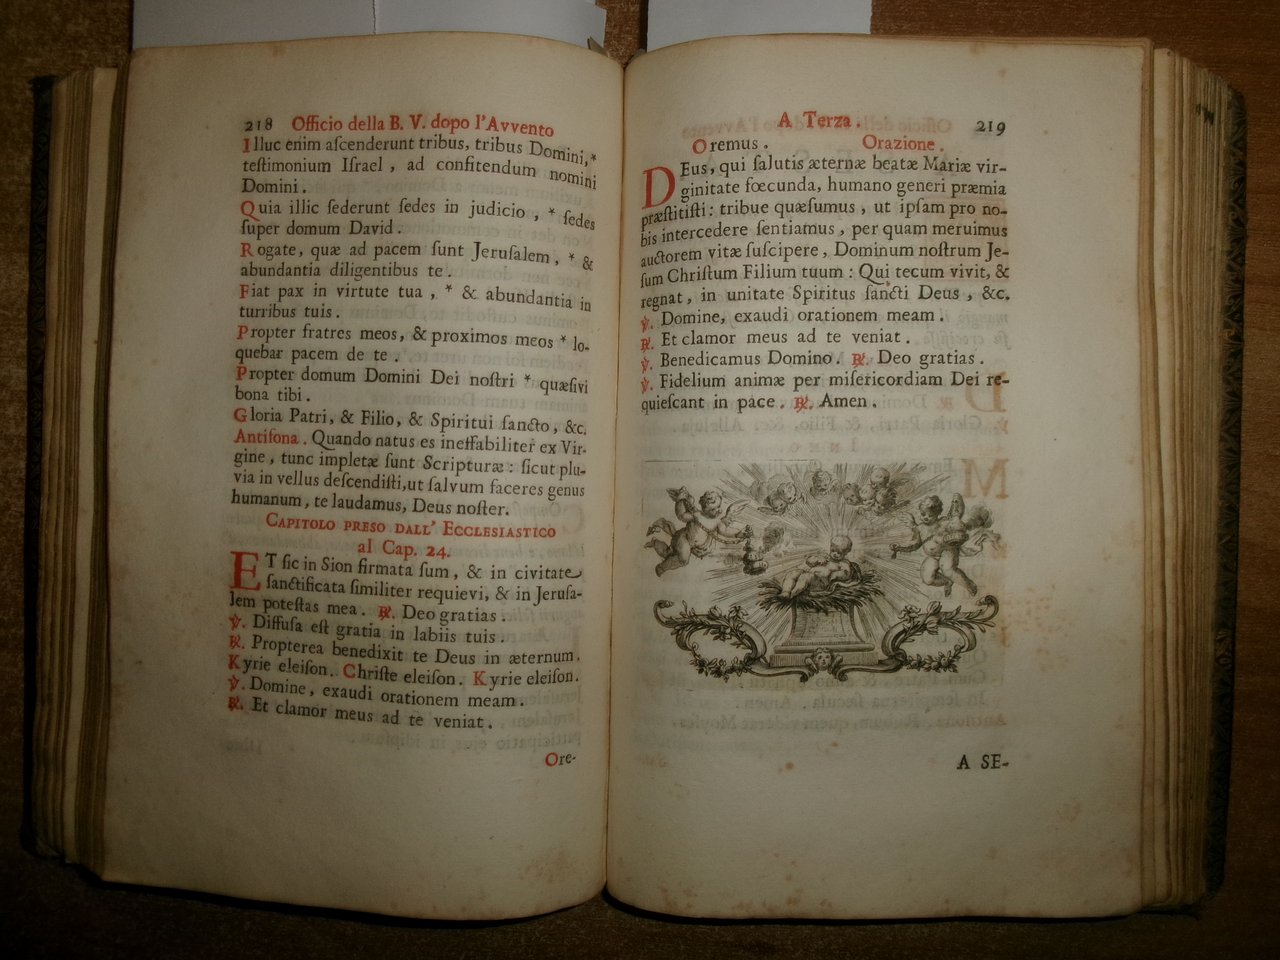 218 Officio della B. V. dopo l'Avvento
Illuc enim aſcenderunt tribus, tribus Domini,*
teſtimonium Iſrael, ad confitendum nomini
Domini.
Quia illic ſederunt ſedes in judicio, * ſedes
ſuper domum David.
Rogate, quæ ad pacem ſunt Jeruſalem, * &
abundantia diligentibus te.
Fiat pax in virtute tua, * & abundantia in
turribus tuis.
Propter fratres meos, & proximos meos * lo-
quebar pacem de te.
Propter domum Domini Dei noſtri * quæſivi
bona tibi.
Gloria Patri, & Filio, & Spiritui ſancto, &c.
Antifona. Quando natus es ineffabiliter ex Vir-
gine, tunc impletæ ſunt Scripturæ: ſicut plu-
via in vellus deſcendiſti, ut ſalvum faceres genus
humanum, te laudamus, Deus noſter.
CAPITOLO PRESO DALL' ECCLESIASTICO
al Cap. 24.
ET ſic in Sion firmata ſum, & in civitate
ſanctificata ſimiliter requievi, & in Jeruſa-
lem poteſtas mea. ℟. Deo gratias.
℣. Diffuſa eſt gratia in labiis tuis.
℟. Propterea benedixit te Deus in æternum.
Kyrie eleiſon. Chriſte eleiſon. Kyrie eleiſon.
℣. Domine, exaudi orationem meam.
℟. Et clamor meus ad te veniat.
Ore-
A Terza. 219
Oremus. Orazione.
DEus, qui ſalutis æternæ beatæ Mariæ vir-
ginitate fœcunda, humano generi præmia
præſtitiſti: tribue quæſumus, ut ipſam pro no-
bis intercedere ſentiamus, per quam meruimus
auctorem vitæ ſuſcipere, Dominum noſtrum Je-
ſum Chriſtum Filium tuum: Qui tecum vivit, &
regnat, in unitate Spiritus ſancti Deus, &c.
℣. Domine, exaudi orationem meam.
℟. Et clamor meus ad te veniat.
℣. Benedicamus Domino. ℟. Deo gratias.
℣. Fidelium animæ per miſericordiam Dei re-
quieſcant in pace. ℟. Amen.
A SE-